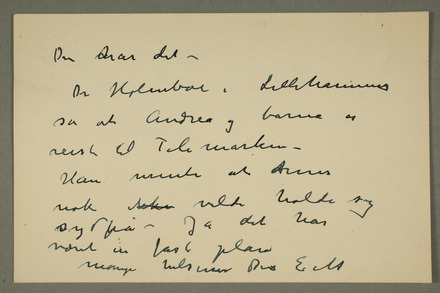 Du har det –
Dr Holmboe i Lillehammer
sa at Andrea og barna er
reist til Telemarken –
Han mente at
nok vilde holde sig
sydpå – Ja det har
vært en fast plan
mange hilsener Din E M